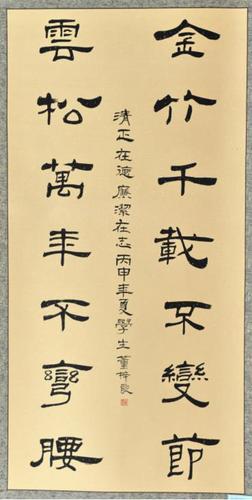 金竹千載不變節
雲松萬年不彎腰
清正在德廉潔在志丙申年夏學生董梓